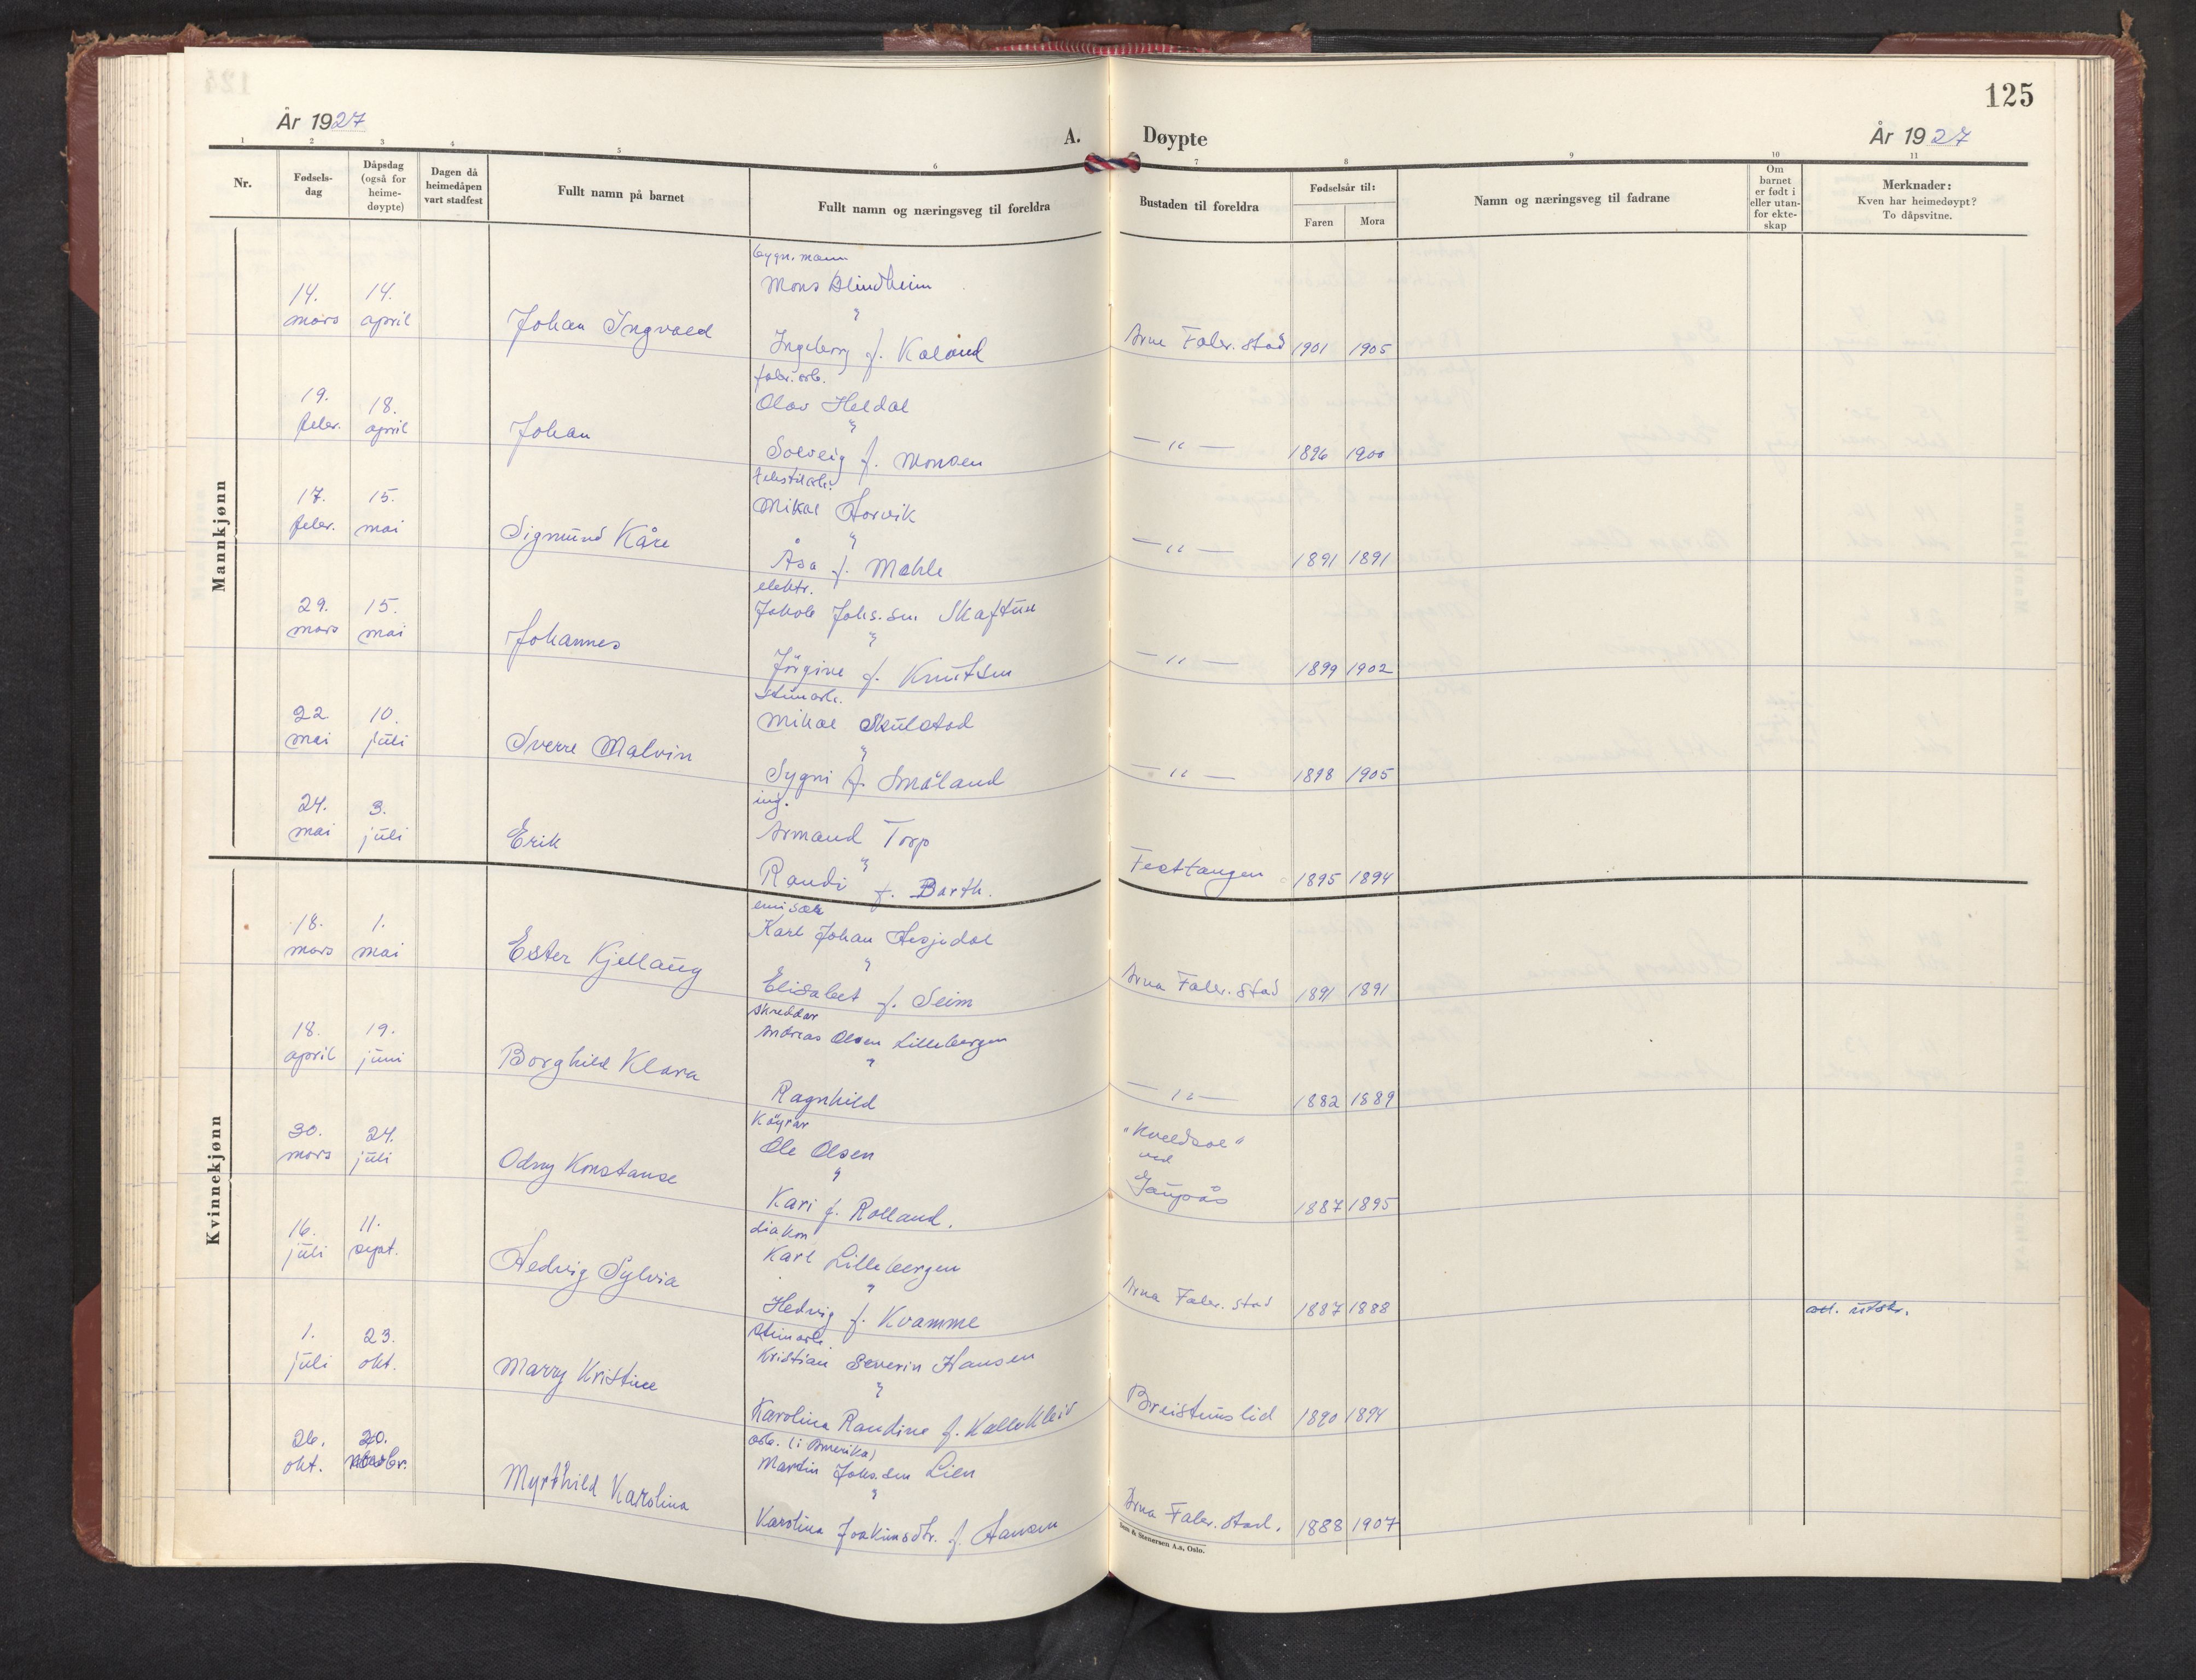 125
År 1927
A. Døypte
År 1927
1 2 3 4 5 6 7 8 9 10 11
Nr.
Fødsels-
dag
Dåpsdag
(også for
heime-
døypte)
Dagen då
heimedåpen
vart stadfest
Fullt namn på barnet
Fullt namn og næringsveg til foreldra
Bustaden til foreldra
Fødselsår til:
Faren Mora
Namn og næringsveg til fadrane
Om
barnet
er født i
eller utan-
for ekte-
skap
Merknader:
Kven har heimedøypt?
To dåpsvitne.
Mannkjønn
bygn. mann
14. 14. Mons Blindheim
mars april Johan Ingvald
Ingeborg f. Kaland Arna Fabr. stad 1901 1905
fabr. arb.
19. 18. Olav Heldal
febr. april Johan
Solveig f. Monsen — " — 1896 1900
tekstilarb.
17. 15. Mikal Horvik
febr. mai Sigmund Kåre
Åsa f. Mahle — " — 1891 1891
elektr.
29. 15. Jakob Johs.sn. Skaftun
mars mai Johannes
Jørgine f. Knutsen — " — 1899 1902
steinarb.
22. 10. Mikal Skulstad
mai juli Sverre Malvin
Sygni f. Småland — " — 1898 1905
ing.
24. 3. Armand Torp
mai juli Erik
Randi f. Barth. Festtangen 1895 1894
Kvinnekjønn
emisær
18. 1. Karl Johan Hesjedal
mars mai Ester Kjellaug
Elisabet f. Seim Arna Fabr. stad 1891 1891
skreddar
18. 19. Andreas Olsen Lillebergen
april juni Borghild Klara
Ragnhild — " — 1882 1889
Køyrar
30. 24. Ole Olsen "Kveldsol"
mars juli Odny Konstanse ved
Kari f. Rolland. Gaupås 1887 1895
diakon
16. 11. Karl Lillebergen
juli sept. Hedvig Sylvia
Hedvig f. Kvamme Arna Fabr. stad 1887 1888 utskr.
steinarb.
1. 23. Kristian Severin Hansen
juli okt. Marry Kristine
Karolina Randine f. Kallekleiv Breistunslid 1890 1894
arb. (i Amerika)
26. 20. Martin Johs.sen Lien
okt. Myrthild Karolina
Karolina Joakimsdtr. f. Hansen Arna Fabr. stad. 1888 1907
Sem & Stenersen A.s, Oslo.